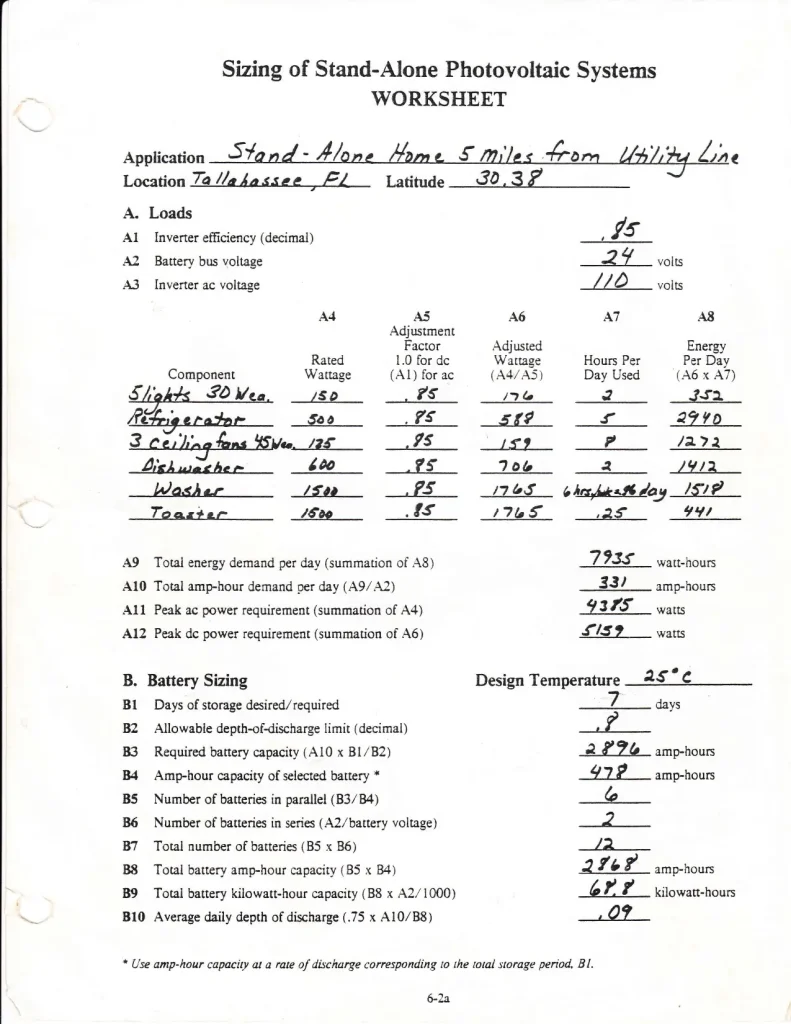 Sizing of Stand-Alone Photovoltaic Systems
WORKSHEET
Application Stand-Alone Home 5 miles from Utility Line
Location Tallahassee, FL Latitude 30.38
A. Loads
A1 Inverter efficiency (decimal) .85
A2 Battery bus voltage 24 volts
A3 Inverter ac voltage 110 volts
A4 A5 A6 A7 A8
Adjustment
Factor Adjusted Energy
Rated 1.0 for dc Wattage Hours Per Per Day
Component Wattage (A1) for ac (A4/A5) Day Used (A6 x A7)
5 lights 30 W ea. 150 .85 176 2 352
Refrigerator 500 .85 588 5 2940
3 ceiling fans 45 W ea. 125 .85 159 8 1272
Dishwasher 600 .85 706 2 1412
Washer 1500 .85 1765 6 hrs/wk=.86 day 1518
Toaster 1500 .85 1765 .25 441
A9 Total energy demand per day (summation of A8) 7935 watt-hours
A10 Total amp-hour demand per day (A9/A2) 331 amp-hours
A11 Peak ac power requirement (summation of A4) 4385 watts
A12 Peak dc power requirement (summation of A6) 5159 watts
B. Battery Sizing Design Temperature 25°C
B1 Days of storage desired/required 7 days
B2 Allowable depth-of-discharge limit (decimal) .8
B3 Required battery capacity (A10 x B1/B2) 2896 amp-hours
B4 Amp-hour capacity of selected battery * 478 amp-hours
B5 Number of batteries in parallel (B3/B4) 6
B6 Number of batteries in series (A2/battery voltage) 2
B7 Total number of batteries (B5 x B6) 12
B8 Total battery amp-hour capacity (B5 x B4) 2868 amp-hours
B9 Total battery kilowatt-hour capacity (B8 x A2/1000) 68.8 kilowatt-hours
B10 Average daily depth of discharge (.75 x A10/B8) .09
* Use amp-hour capacity at a rate of discharge corresponding to the total storage period, B1.
6-2a